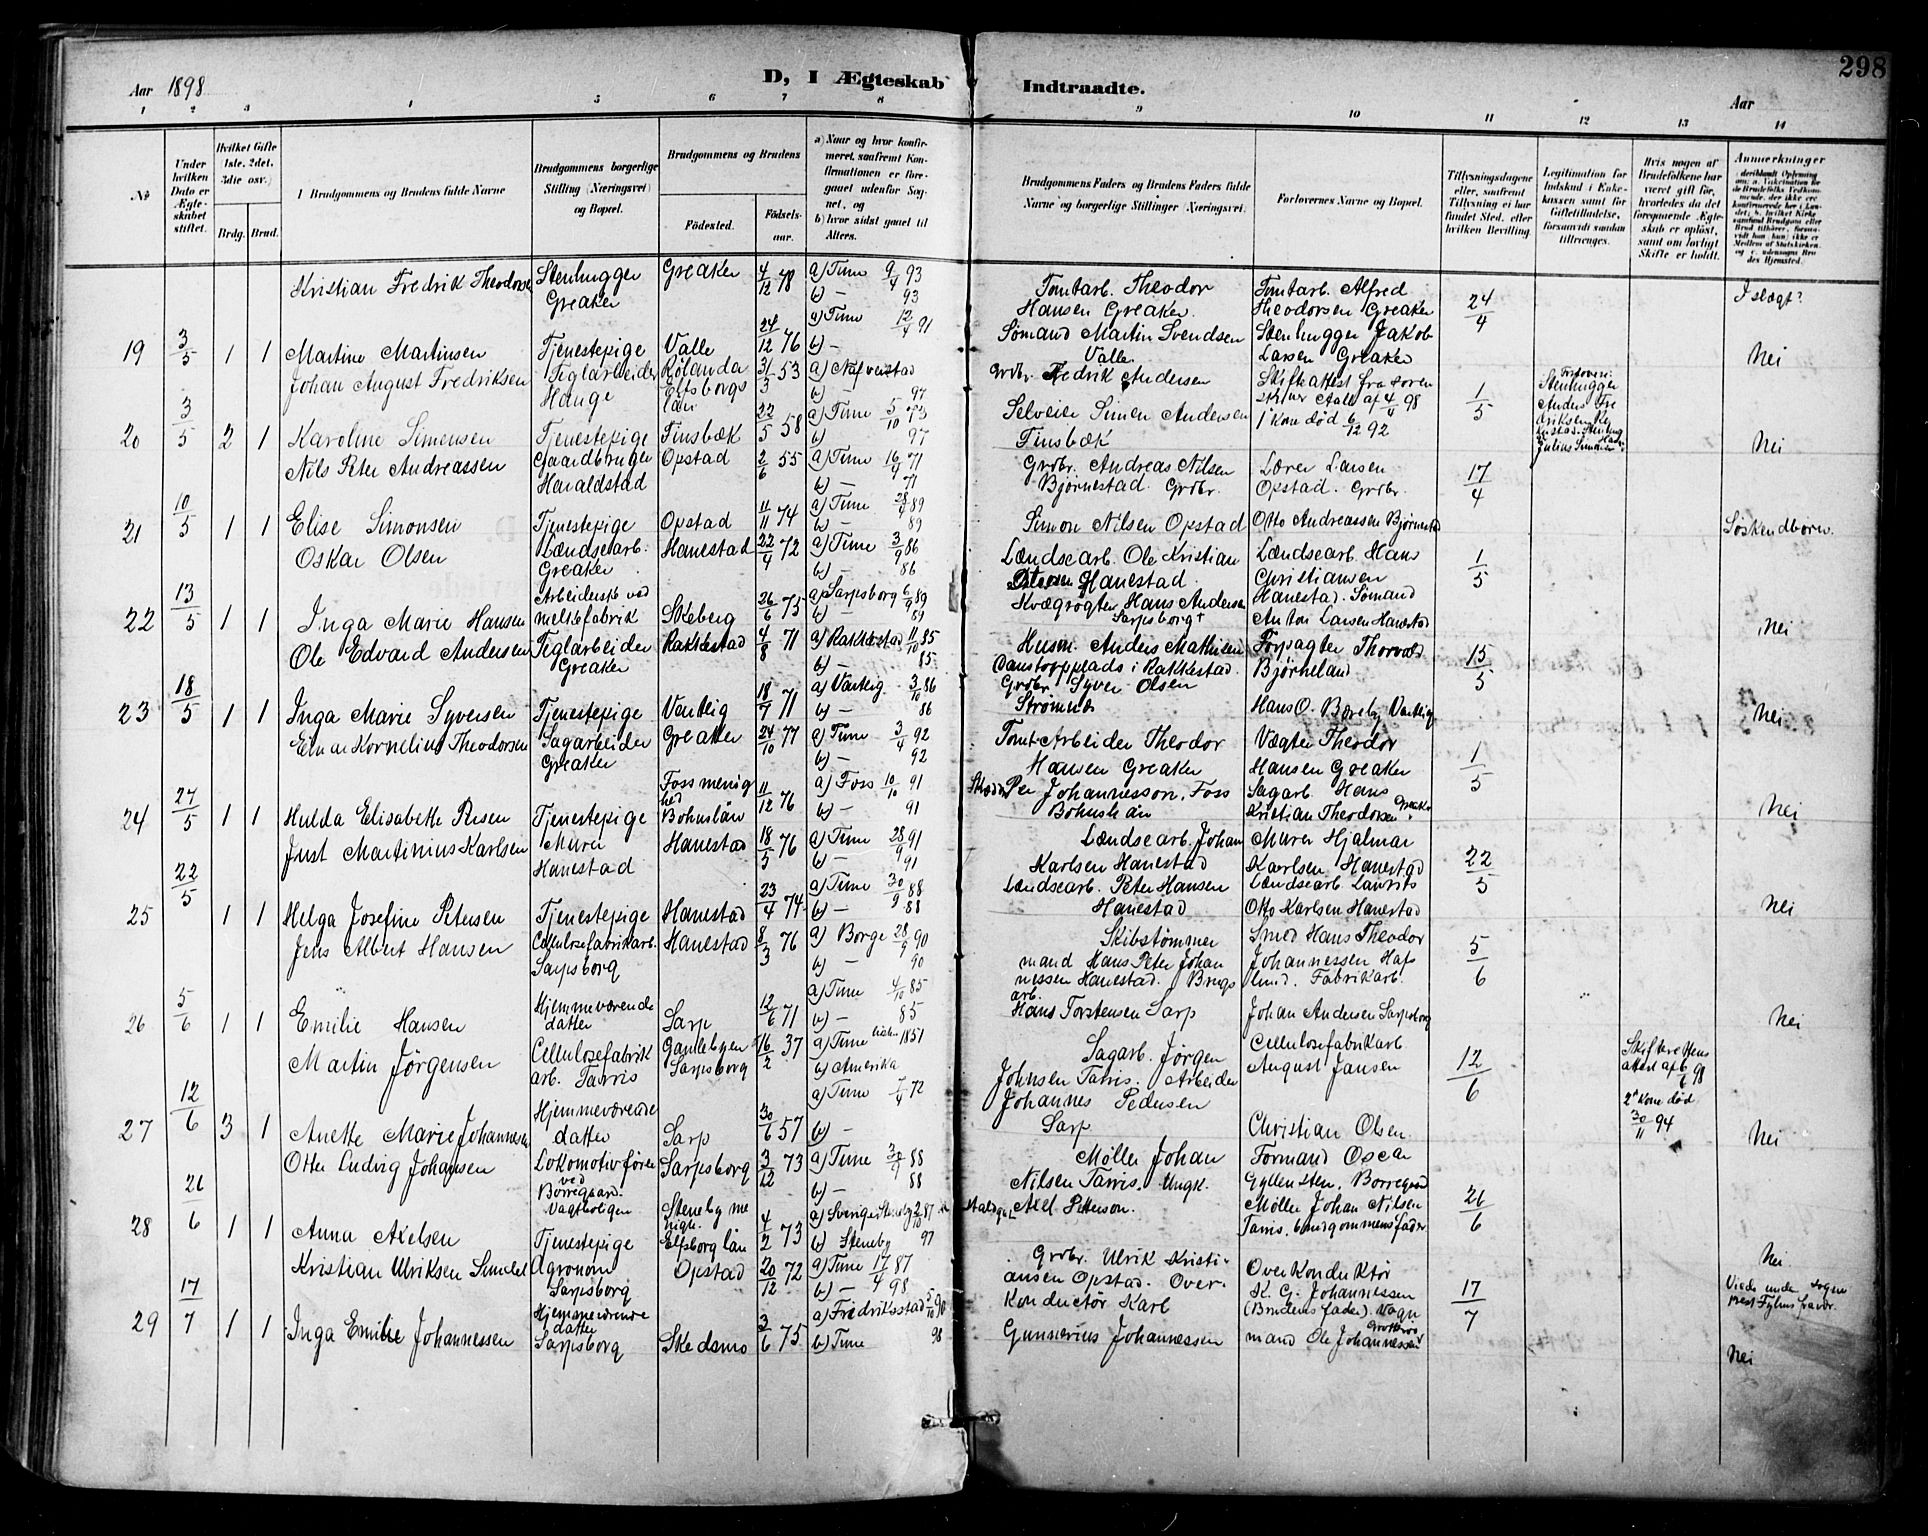 Aar 1898
D, I Ægteskab Indtraadte.
298
Aar
1 2 3 4 5 6 7 8 9 10 11 12 13 14
No
Under hvilken Dato er Ægteskabet stiftet.
Hvilket Gifte 1ste, 2det, 3die osv.)
Brdg. Brud.
Brudgommens og Brudens fulde Navne
Brudgommens borgerlige Stilling (Næringsvei) og Bopæl.
Brudgommens og Brudens
Fødested.
Fødselsaar.
a) Naar og hvor konfirmeret, saafremt Konfirmationen er foregaaet udenfor Sognet, og
b) hvor sidst gaaet til Alters.
Brudgommens Faders og Brudens Faders fulde Navne og borgerlige Stillinger (Næringsvei).
Forlovernes Navne og Bopæl.
Tillysningsdagene eller, saafremt Tillysning ei har fundet Sted, efter hvilken Bevilling.
Legitimation for Indskud i Enkekassen samt for Giftetilladelse, forsaavidt saadan tiltrænges.
Hvis nogen af Brudefolkene har været gift før, hvorledes da det foregaaende Ægteskab er opløst, samt om lovligt Skifte er holdt.
Anmerkninger
Kristian Fredrik Theodorse Stenhugger Greaker Greaker 4/12 78 a) Tune 9/4 93 b) — 93
Tomtarb. Theodor Hansen Greaker. Tomtarb. Alfred Theodorsen Greaker 24/4 I slægt?
19 3/5 1 1 Martine Martinsen Tjenestepige Valle 24/12 76 a) Tune 12/4 91 b) —
Sømand Martin Svendsen Valle. Stenhugger Jakob Larsen Greaker Nei
Johan August Fredriksen Teglarbeider Hauge Rølanda Elfsborgs län 31/3 53 a) b) — 97
Grdbr. Fredrik Andersen Skifteattest fra soren Aall af 4/4 98 1/5
20 3/5 2 1 Karoline Simensen Tjenestepige Finsbæk 22/5 58 a) Tune 5/10 73 b) 97
Selveier Simen Andersen Finsbæk 1ste kone død 6/12 92 Nei
Forlovere: Stenhugger Anders Fredriksen Julius Simensen
Nils Peter Andreassen Gaardbruger Haraldstad Opstad 2/6 55 a) Tune 16/4 71 b) — 71
Grdbr. Andreas Nilsen Bjørnestad. Grdbr. Lærer Larsen Opstad. Grdbr. 17/4
21 10/5 1 1 Elise Simonsen Tjenestepige Opstad 11/11 74 a) Tune 28/4 89 b) — 89
Simon Nilsen Opstad Otto Andreassen Bjørnestad Søskendbørn.
Oskar Olsen Lændsearb. Greaker Hanestad 22/4 72 a) Tune 3/9 86 b) — 86
Lændsearb. Ole Kristian Petersen Hanestad. Lændsearb. Hans Christiansen Hanestad. Sømand 1/5
22 13/5 1 1 Inga Marie Hansen Arbeiderske ved melkefabrik Skeberg 26/6 75 a) Sarpsborg 6/9 89 b) — 89
Kvægrøgter Hans Andersen Sarpsborg Anton Larsen Hanestad Nei
Ole Edvard Andersen Teglarbeider Greaker Rakkestad 4/8 71 a) Rakkestad 11/10 85 b) — 85
Husm. Anders Mathisen i Rakkestad. Forpagter Thorvald Bjørneland 15/5
23 18/5 1 1 Inga Marie Syversen Tjenestepige Varteig 18/7 71 a) Varteig 3/10 86 b) — 86
Grdbr. Syver Olsen Strømnes Hans O. Børeby Varteig Nei
Einar Kornelius Theodorsen Sagarbeider Greaker Greaker 24/10 77 a) Tune 3/4 92 b) — 92
Tomt-Arbeider Theodor Hansen Greaker Vægter Theodor Hansen Greaker 1/5
24 27/5 1 1 Hulda Elisabette Persen Tjenestepige Foss menighed Bohuslän 11/12 76 a) Foss 10/10 91 b) — 91
Per Johannesson, Foss Bohuslän Sagarb. Hans Kristian Theodorsen Greaker. Nei
Just Martinius Karlsen Murer Hanestad Hanestad 18/5 76 a) Tune 28/9 91 b) — 91
Lændsearb. Johan Karlsen Hanestad Murer Hjalmar Karlsen Hanestad 22/5
25 22/5 1 1 Helga Josefine Petersen Tjenestepige Hanestad 23/4 74. a) Tune 30/9 88 b) — 88
Lændsearb. Peter Hansen Hanestad Lændsearb. Laurits Otto Karlsen Hanestad Nei
Jens Albert Hansen Cellulosefabrikarb. Sarpsborg Hanestad 8/3 76 a) Borge 28/9 90 b) — 90
Skibstømmermand Hans Peter Johannessen Hanestad. Brugsarb. Smed Hans Theodor Johannessen Hafslund. Fabrikarb. 5/6
26 5/6 1 1 Emilie Hansen Hjemmeværende datter Sarp 12/6 71 a) Tune 4/10 85 b) — 85
Hans Torstensen Sarp Johan Andersen Sarpsborg Nei
Martin Jørgensen Cellulosefabrik arb. Tarris Gamlebyen Sarpsborg 16/2 37 a) Tune 1851 b) Amerika
Sagarb. Jørgen Johnsen Tarris. Arbeider Cellulosefabrikarb August Jansen 12/6 Skifterettens attest af 6/6 98
27 12/6 3 1 Anette Marie Johannesen Hjemmeværende datter Sarp 30/6 57 a) Tune 7/4 72 b) —
Johannes Pedersen Sarp Christian Olsen 2den kone død 30/11 94 Nei
Otto Ludvig Johansen Lokomotivfører ved Borregaard. Vagtboligen Sarpsborg 3/12 73 a) Tune 30/9 88 b) — 88
Møller Johan Nilsen Tarris. Ungk. Formand Oscar Gyllensten, Borregaard 26/6
28 26/6 1 1 Anna Axelsen Tjenestepige Steneby menigh. Elfsborg län 4/2 73 a) Sverige Steneby 2/10 87 b) Steneby 97
Axel Petterson. Møller Johan Nilsen Tarris. brudgommens fader Nei
Kristian Ulriksen Agronom Sarpsborg Opstad 20/12 72 a) Tune 17/4 87 b) — 98
Grdbr. Ulrik Kristiansen Opstad. Over- Overkonduktør K. G. Johannessen (Brudens fader). Vogn 17/7 Viede under sogneprest fravær.
29 17/7 1 1 Inga Emilie Johannessen Hjemmeværende datter Sarpsborg Skedsmo 3/6 75 a) Fredriksstad 5/10 90 b) Tune 98
konductør Karl Gunnerius Johannessen mand Ole Johannessen Nei